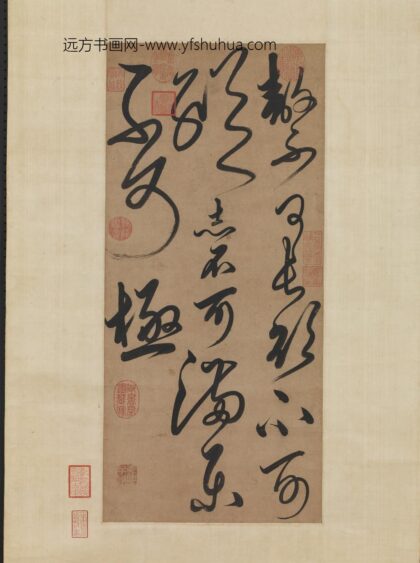 远方书画网-www.yfshuhua.com
敖不可長欲不可
從志不可滿樂
不可極